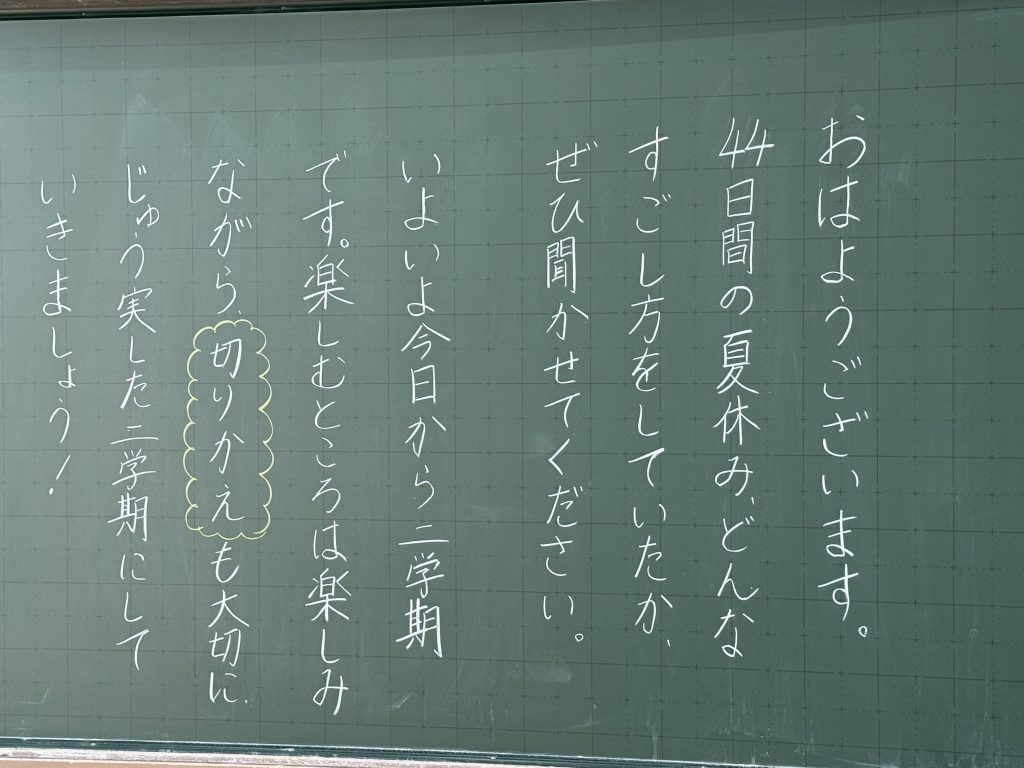 おはようございます。
44日間の夏休み、どんな
すごし方をしていたか、
ぜひ聞かせてください。
いよいよ今日から二学期
です。楽しむところは楽しみ
ながら、切りかえも大切に、
じゅう実した二学期にして
いきましょう!